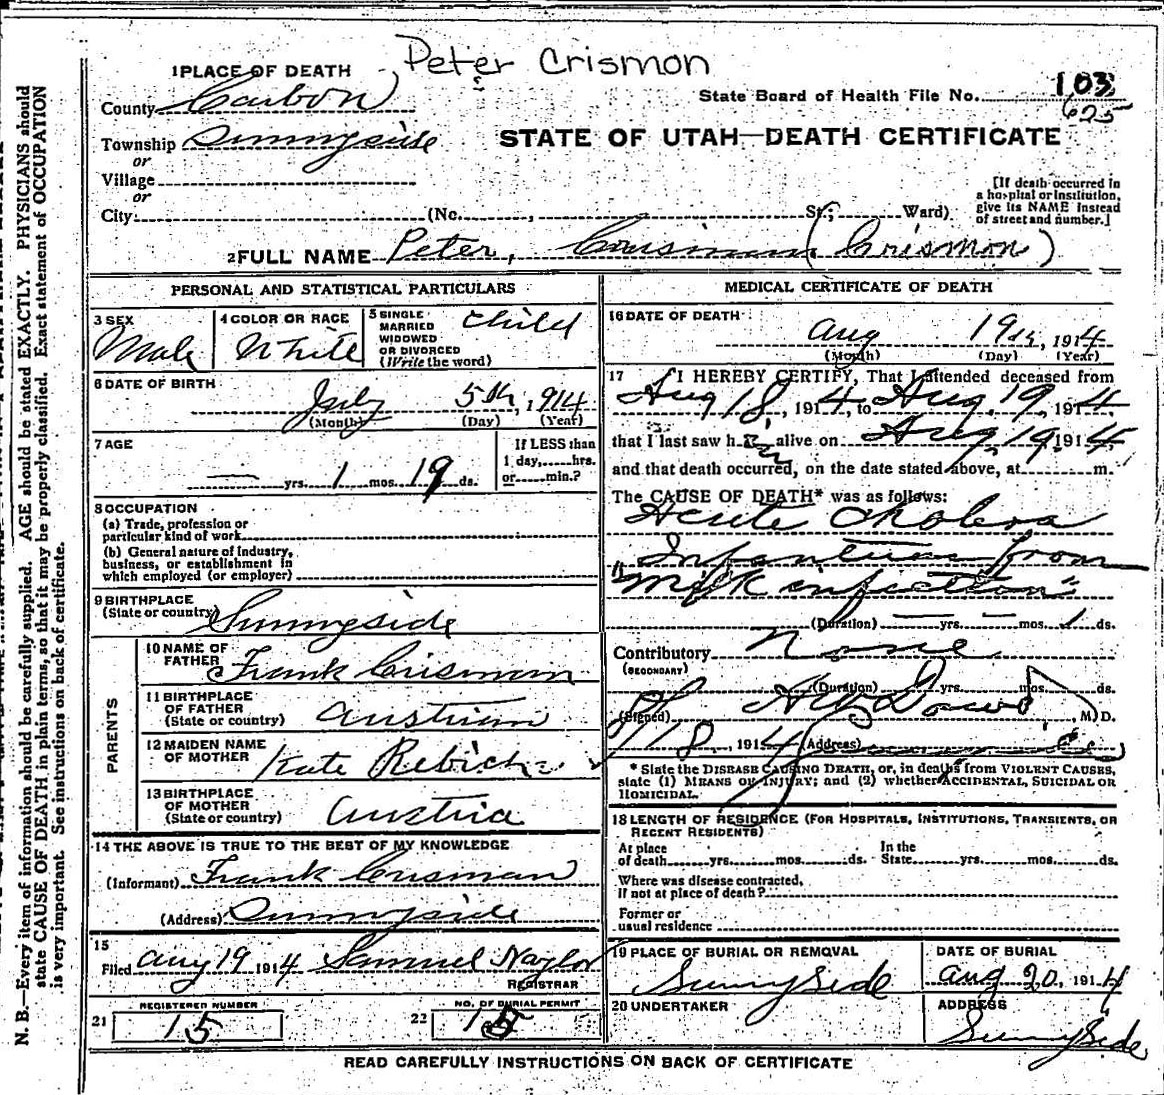 Peter Crismon
1 PLACE OF DEATH
County Carbon
State Board of Health File No. 103
625
Township Sunnyside
STATE OF UTAH—DEATH CERTIFICATE
or
Village
or
City (No. , St.; Ward)
[If death occurred in
a hospital or institution,
give its NAME instead
of street and number.]
2 FULL NAME Peter, Crisman (Crismon)
PERSONAL AND STATISTICAL PARTICULARS
3 SEX
Male
4 COLOR OR RACE
White
5 SINGLE
MARRIED
WIDOWED
OR DIVORCED
(Write the word)
Child
6 DATE OF BIRTH
July 5th, 1914
(Month) (Day) (Year)
7 AGE
— yrs. 1 mos. 19 ds.
If LESS than
1 day, hrs.
or min.?
8 OCCUPATION
(a) Trade, profession or
particular kind of work
(b) General nature of industry,
business, or establishment in
which employed (or employer)
9 BIRTHPLACE
(State or country) Sunnyside
PARENTS
10 NAME OF
FATHER Frank Crisman
11 BIRTHPLACE
OF FATHER
(State or country) Austrian
12 MAIDEN NAME
OF MOTHER Kate
13 BIRTHPLACE
OF MOTHER
(State or country) Austria
14 THE ABOVE IS TRUE TO THE BEST OF MY KNOWLEDGE
(Informant) Frank Crisman
(Address) Sunnyside
15
Filed Aug 19 1914 Samuel Naylor
REGISTRAR
REGISTERED NUMBER
21 15
NO. OF BURIAL PERMIT
22 15
MEDICAL CERTIFICATE OF DEATH
16 DATE OF DEATH
Aug 19th, 1914
(Month) (Day) (Year)
17 I HEREBY CERTIFY, That I attended deceased from
Aug 18, 1914, to Aug. 19, 1914
that I last saw h im alive on Aug. 19, 1914
and that death occurred, on the date stated above, at m.
The CAUSE OF DEATH* was as follows:
Acute Cholera
Infantum from
"Milk infection"
(Duration) — yrs. — mos. 1 ds.
Contributory None
(SECONDARY)
(Duration) yrs. mos. ds.
(Signed) , M. D.
, 1914 (Address)
* State the DISEASE CAUSING DEATH, or, in deaths from VIOLENT CAUSES,
state (1) MEANS OF INJURY; and (2) whether ACCIDENTAL, SUICIDAL OR
HOMICIDAL.
18 LENGTH OF RESIDENCE (FOR HOSPITALS, INSTITUTIONS, TRANSIENTS, OR
RECENT RESIDENTS)
At place
of death yrs. mos. ds.
In the
State yrs. mos. ds.
Where was disease contracted,
if not at place of death?
Former or
usual residence
19 PLACE OF BURIAL OR REMOVAL
Sunnyside
DATE OF BURIAL
Aug 20, 1914
20 UNDERTAKER
ADDRESS
SunnySide
READ CAREFULLY INSTRUCTIONS ON BACK OF CERTIFICATE
N. B.—Every item of information should be carefully supplied. AGE should be stated EXACTLY. PHYSICIANS should
state CAUSE OF DEATH in plain terms, so that it may be properly classified. Exact statement of OCCUPATION
is very important. See instructions on back of certificate.